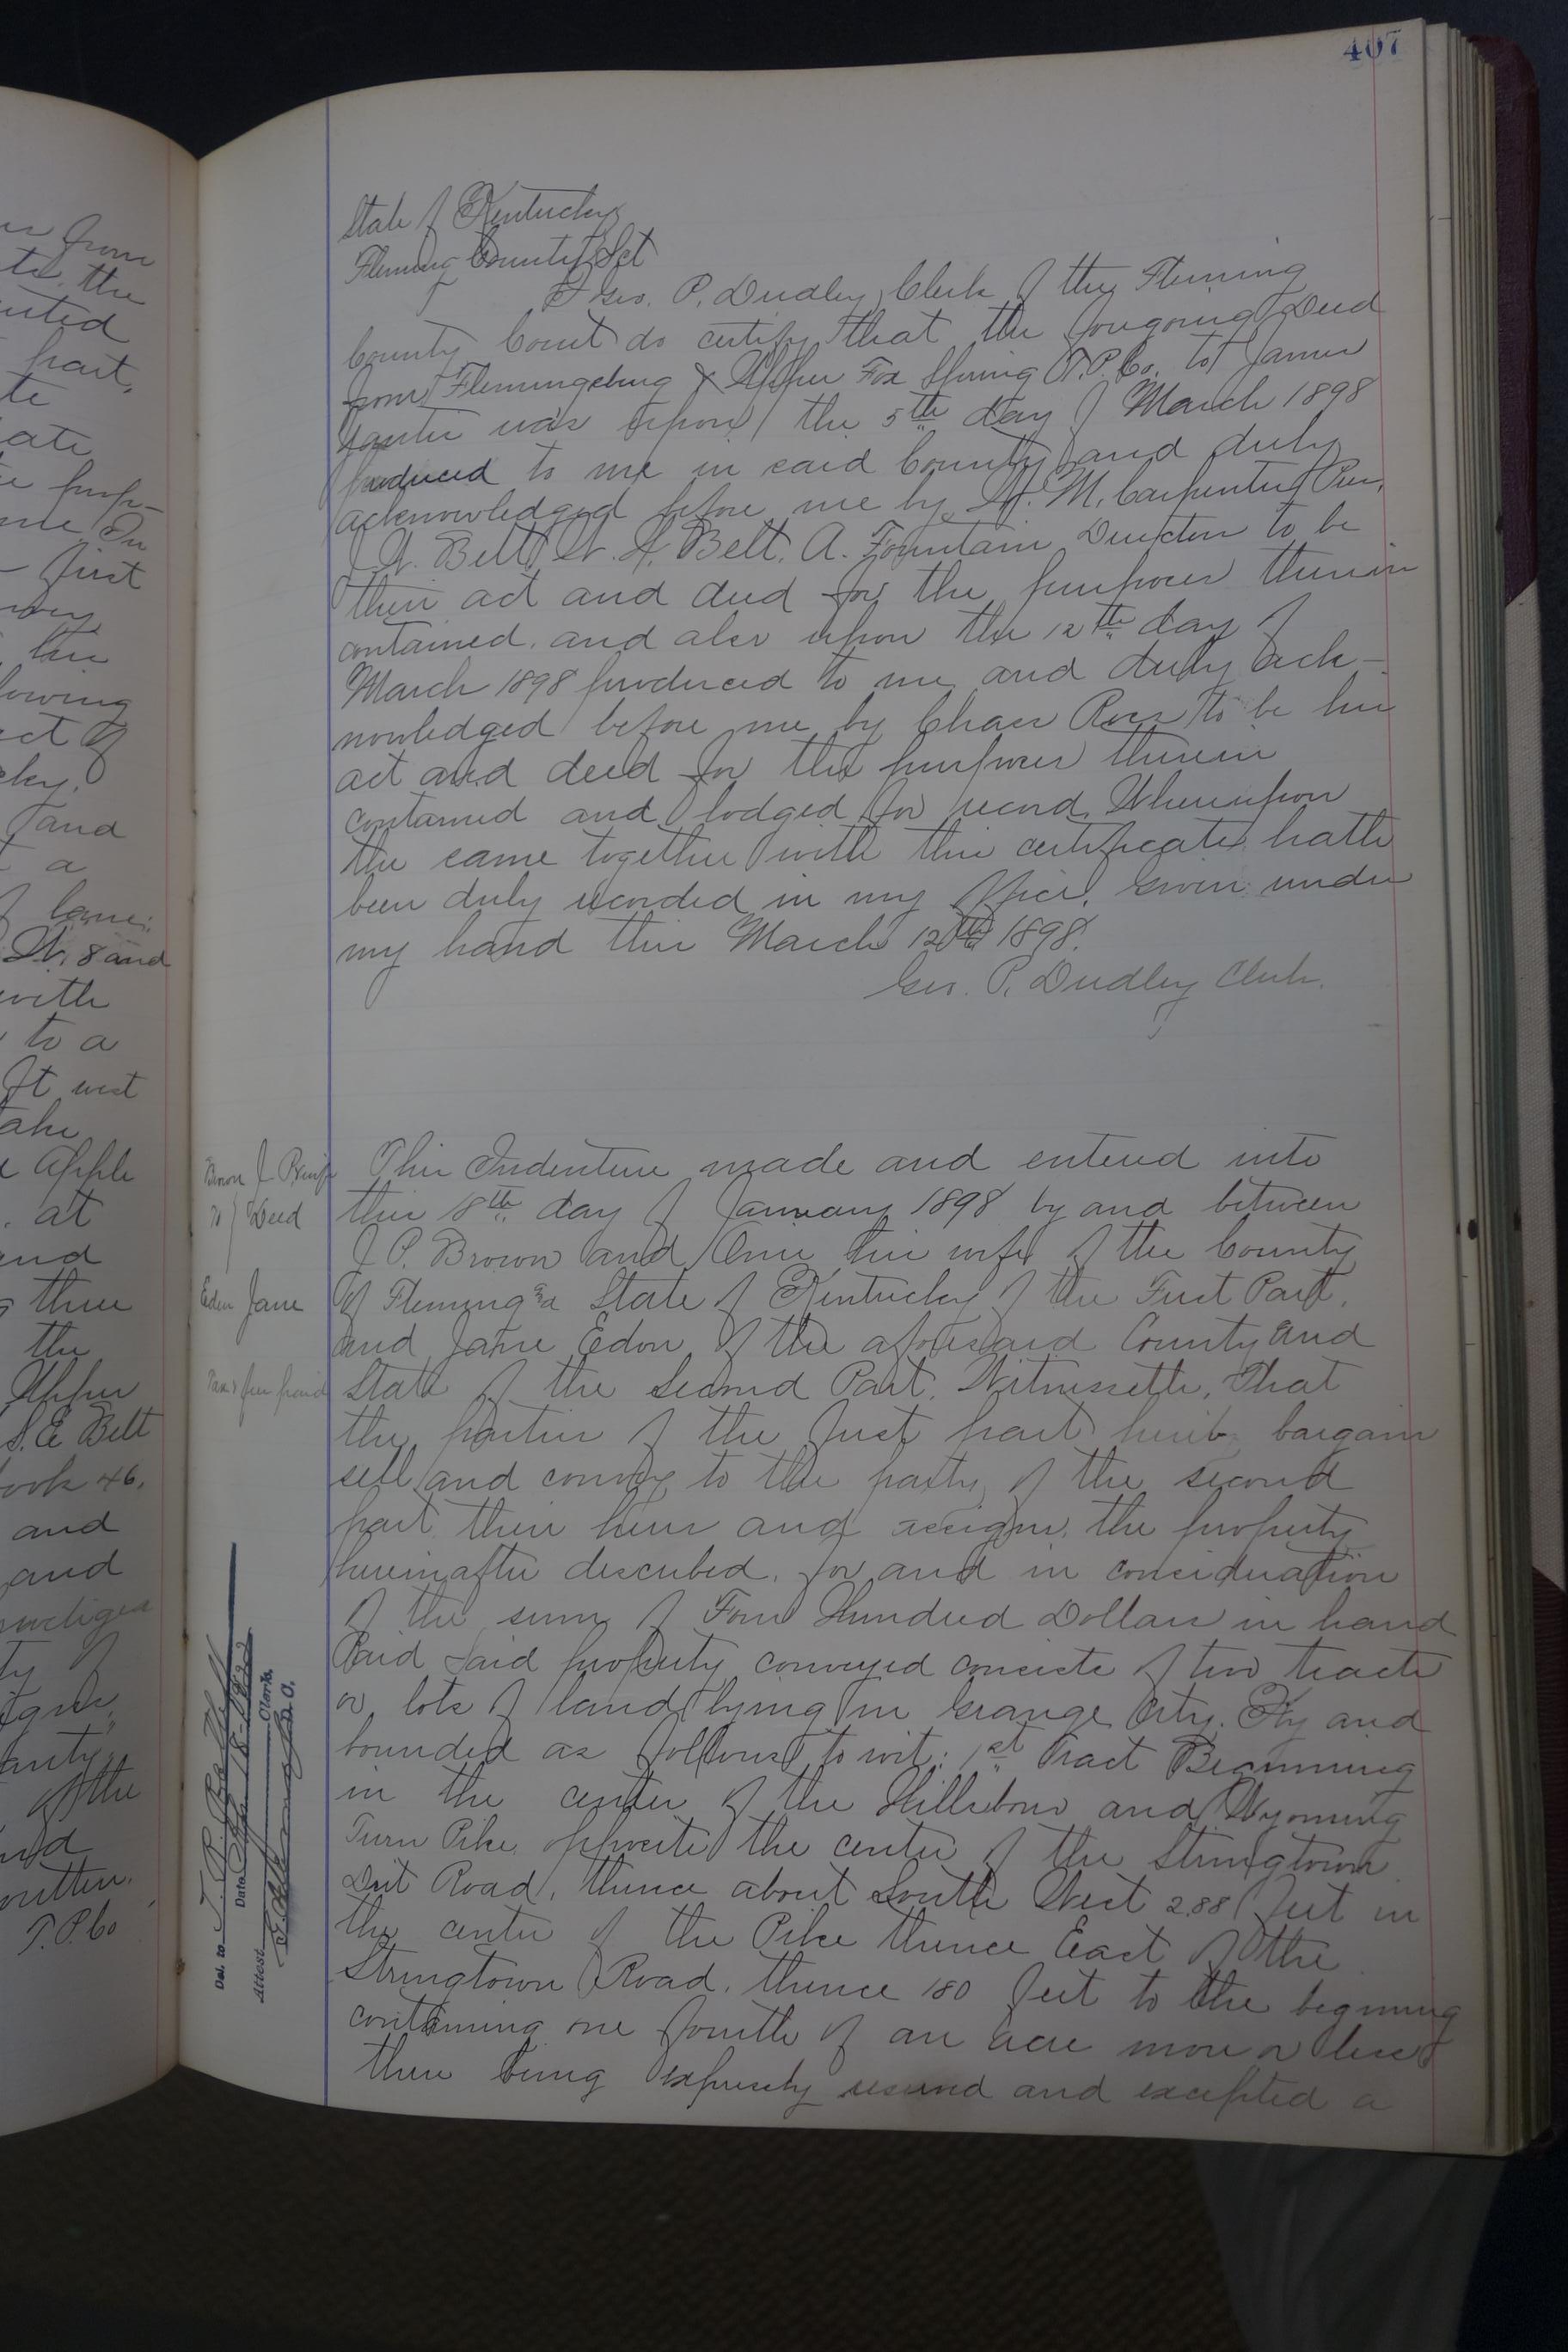 407
State of Kentucky
Fleming County Sct
I Geo. P. Dudley, Clerk of the Fleming
County Court do certify that the foregoing Deed
from Flemingsburg & Upper Fox Spring T.P. Co. to James
was upon the 5th day of March 1898
produced to me in said County and duly
acknowledged before me by M. Carpenter Pres,
Belt, Belt, A. Fountain Director to be
their act and deed for the purposes therein
contained. and also upon the 12th day of
March 1898 produced to me and duly ack-
nowledged before me by Chas Ross to be his
act and deed for the purposes therein
contained and lodged for record, Whereupon
the same together with this certificate hath
been duly recorded in my office, Given under
my hand this March 12th 1898.
Geo. P. Dudley Clerk.
Brown J P & wife
To } Deed
Eden Jane
Tax & fee paid
This Indenture made and entered into
this 18th day of January 1898 by and between
J. P. Brown and his wife of the County
of Fleming and State of Kentucky of the First Part,
and Jane Edon of the aforesaid County and
State of the Second Part, Witnesseth, That
the parties of the first part hereby bargain
sell and convey to the party of the second
part their heirs and assigns, the property
hereinafter described, for and in consideration
of the sum of Four Hundred Dollars in hand
Paid Said property conveyed consists of two tracts
or lots of land lying in Grange City, Ky and
bounded as follows, to wit: 1st Tract Beginning
in the center of the Hillsboro and Wyoming
Turn Pike, opposite the center of the Stringtown
Dirt Road, thence about South West 288 feet in
the center of the Pike thence East of the
Stringtown Road, thence 180 feet to the beginning
containing one fourth of an acre more or less
there being expressly reserved and excepted a
Del. to
Date
Attest
Clerk.
D. C.
from
the
part,
and
a
St. 8 and
with
to a
ft west
Apple
at
and
thence
the
Upper
S. E Belt
book 46.
and
and
of the
written.
T. P. Co